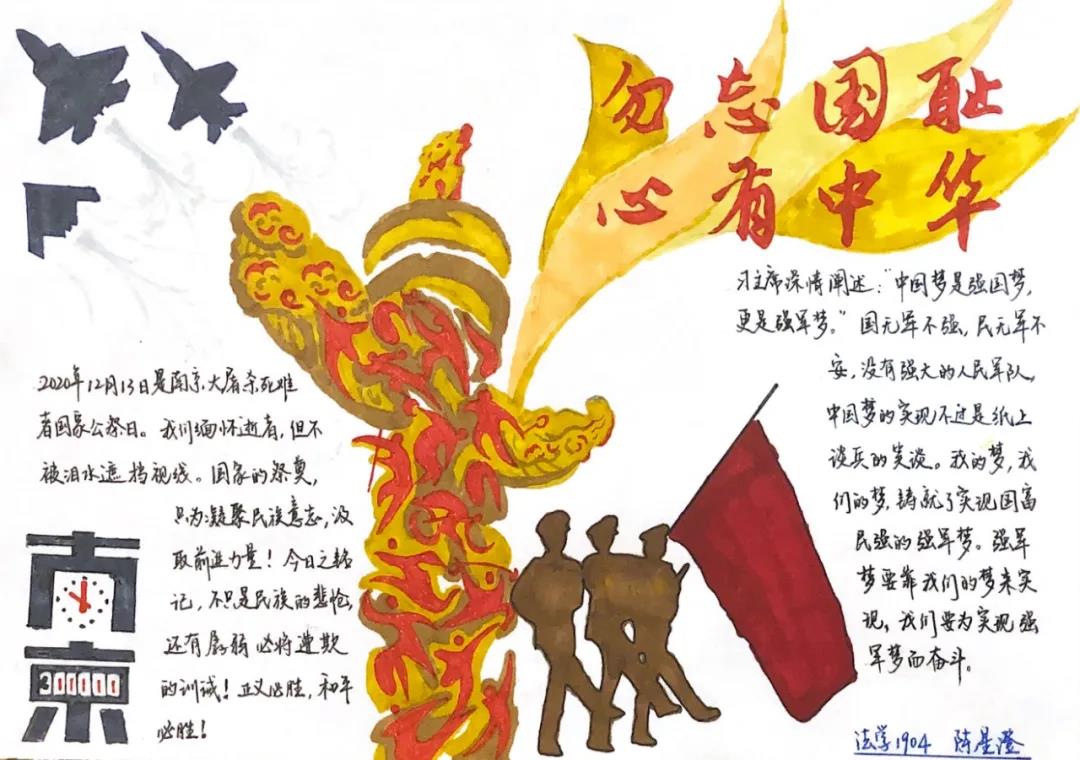 勿忘国耻
心有中华
习主席深情阐述：“中国梦是强国梦，
更是强军梦。”国无军不强，民无军不
安，没有强大的人民军队，
中国梦的实现不过是纸上
谈兵的笑谈。我的梦，我
们的梦，铸就了实现国富
民强的强军梦。强军
梦要靠我们的梦来实
现，我们要为实现强
军梦而奋斗。
2020年12月13日是南京大屠杀死难
者国家公祭日。我们缅怀逝者，但不
被泪水遮挡视线。国家的祭奠，
只为凝聚民族意志，汲
取前进力量！今日之铭
记，不只是民族的悲怆，
还有孱弱必将遭欺
的训诫！正义必胜，和平
必胜！
南
京
300000
法学1904 陈星澄